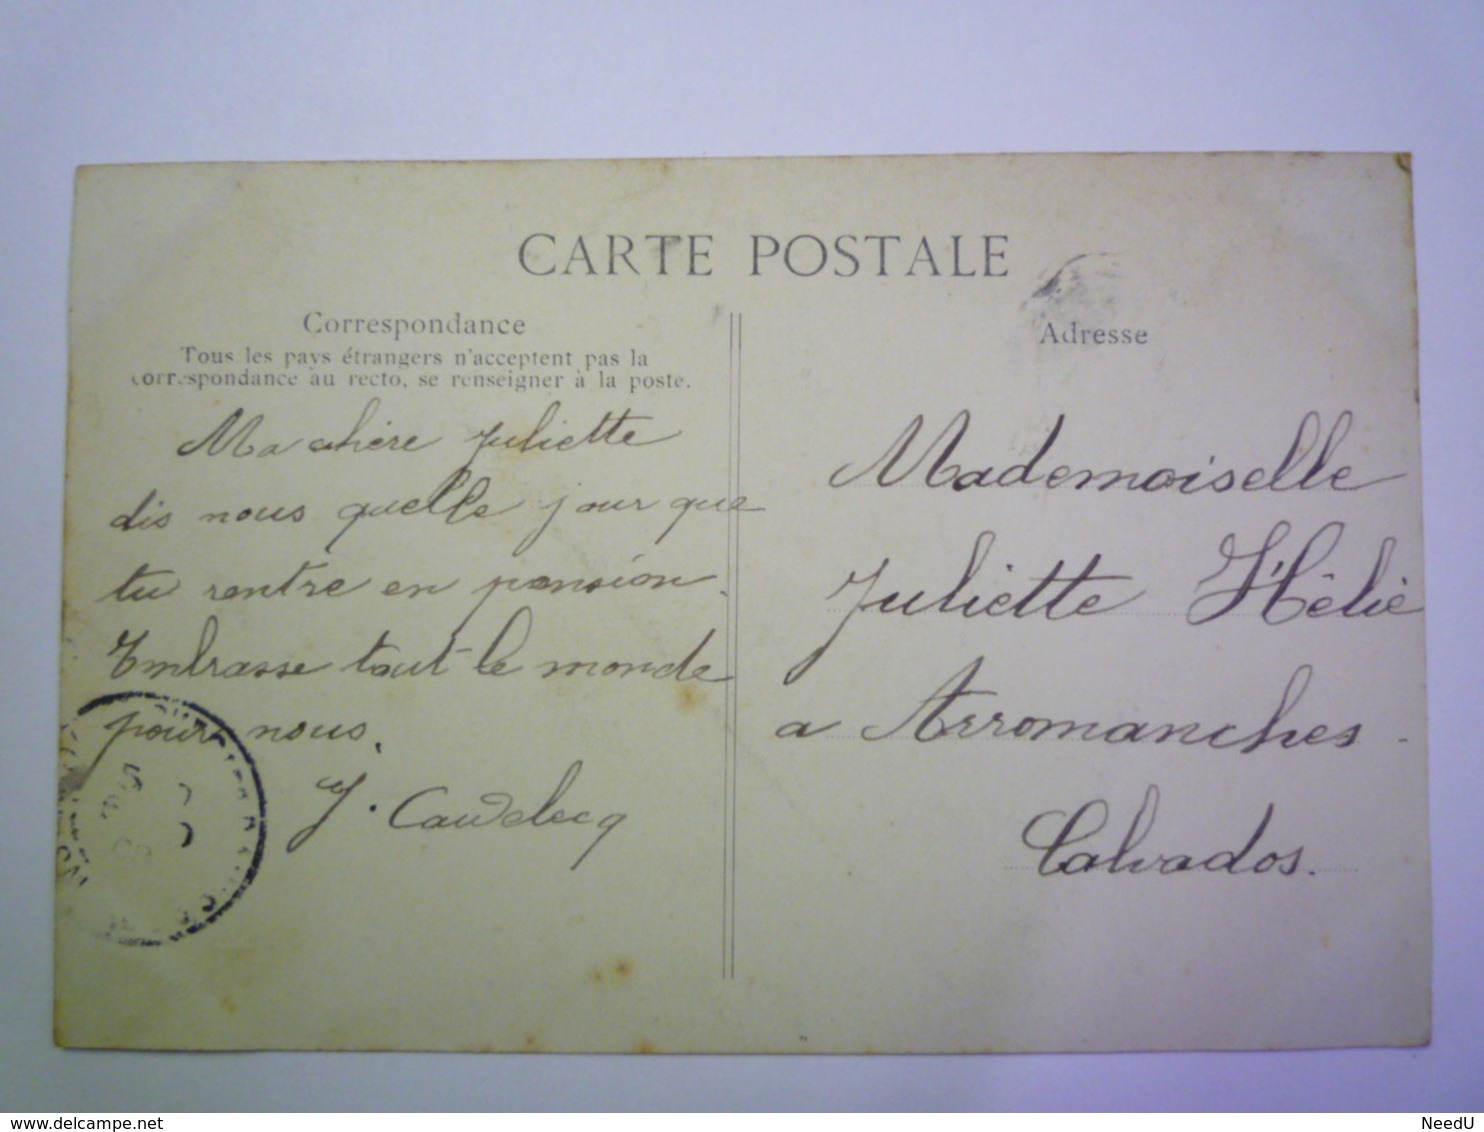 CARTE POSTALE
Correspondance
Tous les pays étrangers n'acceptent pas la
correspondance au recto, se renseigner à la poste.
Ma chère Juliette
dis nous quelle jour que
tu rentre en pension.
Embrasse tout le monde
pour nous.
J. Caudelecq
Adresse
Mademoiselle
Juliette Hélie
a Arromanches -
Calvados.
www.delcampe.net
NeedU